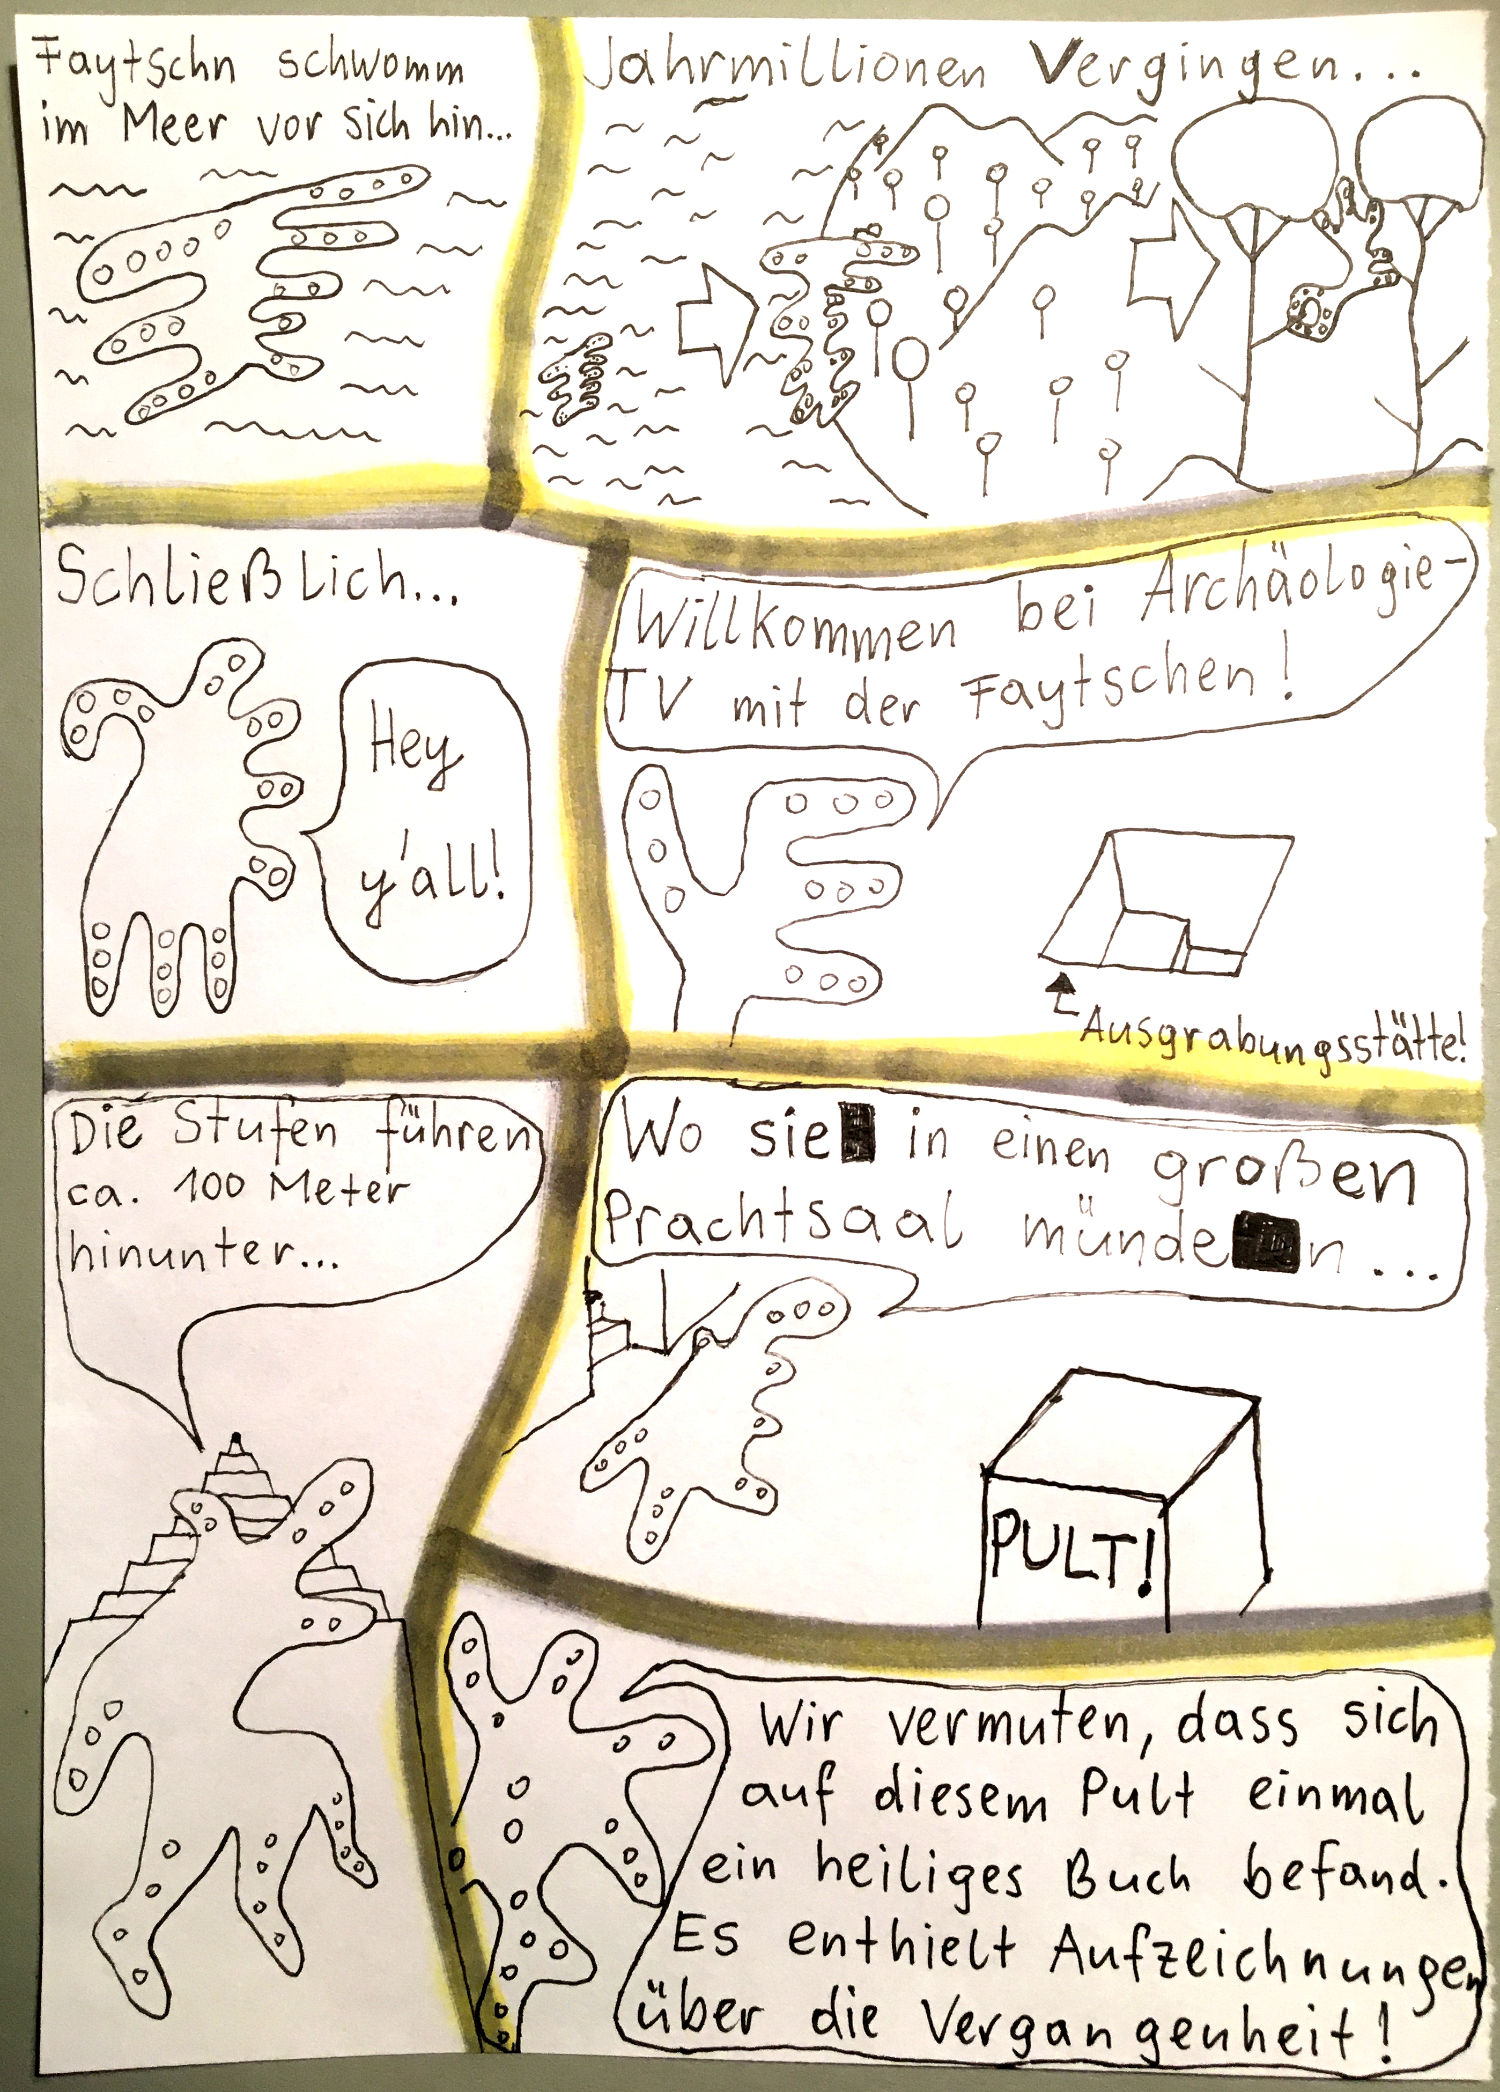 Faytschn schwomm
im Meer vor sich hin...
Jahrmillionen Vergingen...
Schließlich...
Hey
y'all!
Willkommen bei Archäologie-
TV mit der Faytschen!
Ausgrabungsstätte!
Die Stufen führen
ca. 100 Meter
hinunter...
Wo sie in einen großen
Prachtsaal münden...
PULT!
Wir vermuten, dass sich
auf diesem Pult einmal
ein heiliges Buch befand.
Es enthielt Aufzeichnungen
über die Vergangenheit!